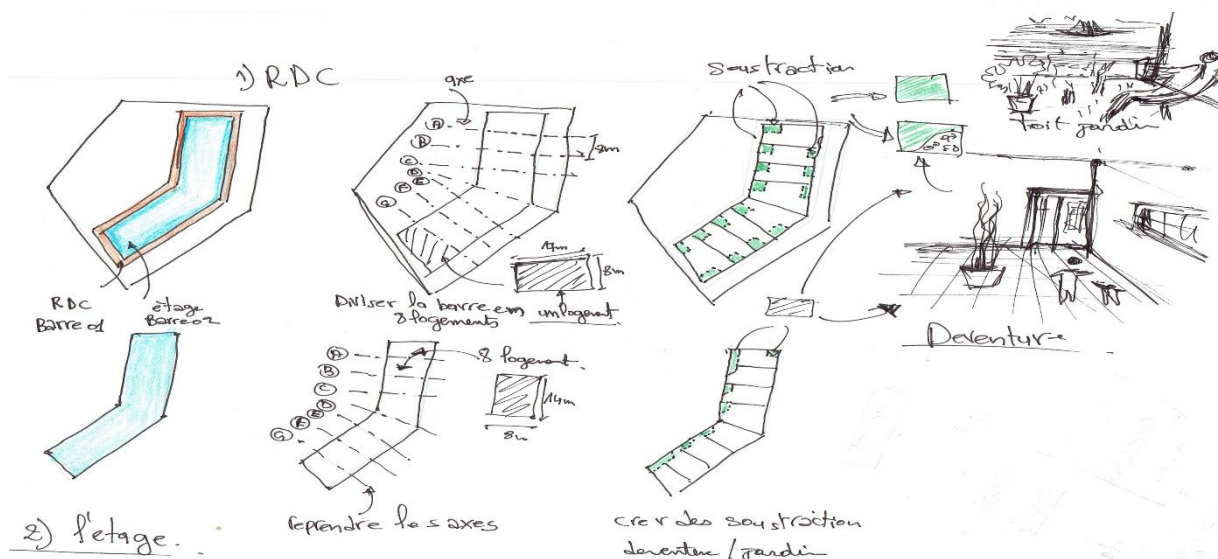 1) RDC
axe
A
B
C
D
E
F
G
8m
14m
8m
RDC
Barre 01
étage
Barre 02
Diviser la barre en
8 logements
un logement
soustraction
toit jardin
Deventure
A
B
C
D
E
F
G
8 logement
14m
8m
reprendre les axes
creer des soustraction
deventure / jardin
2) l'étage.